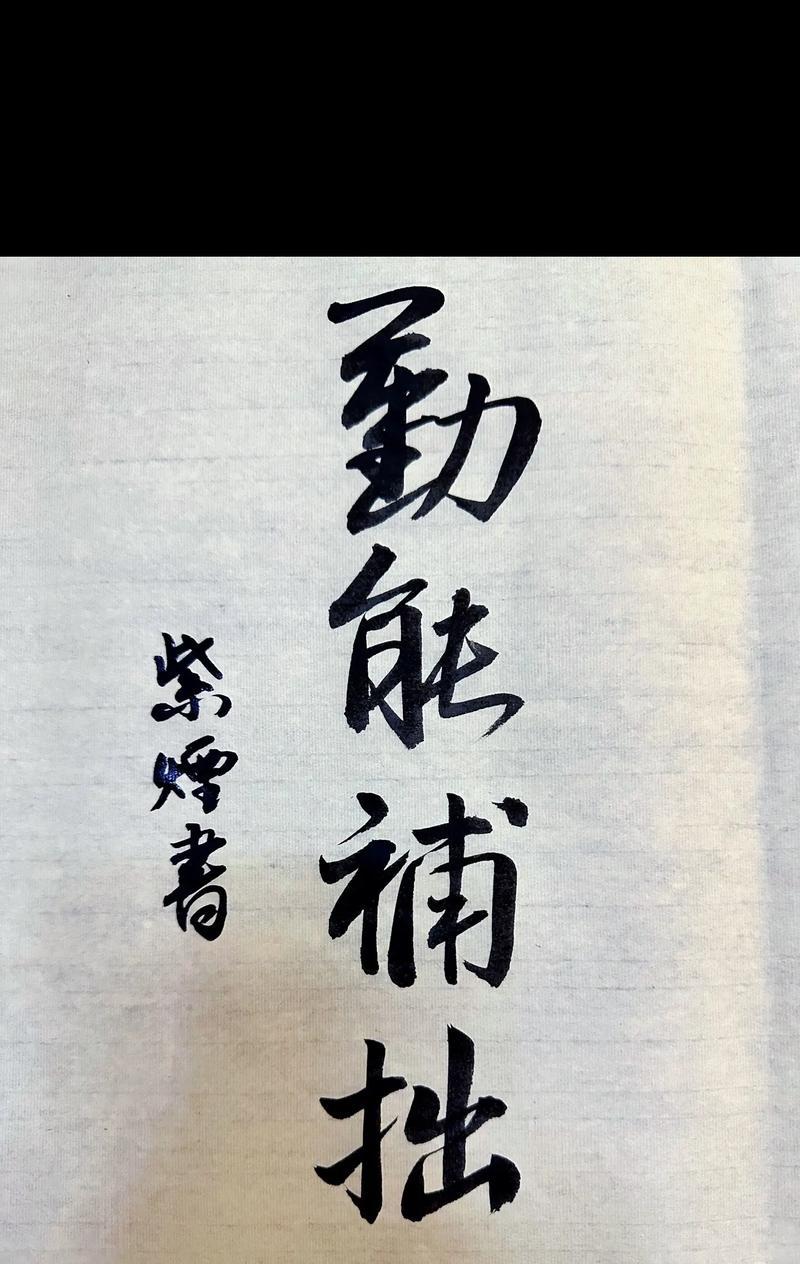 勤能補拙
紫煙書